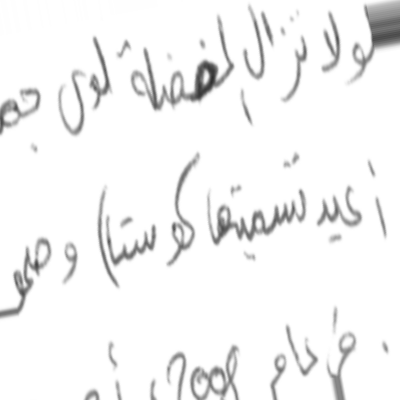 ولا تزال المفضلة لدى
أعيد تسميتها كوستا) و
. في عام 2008،